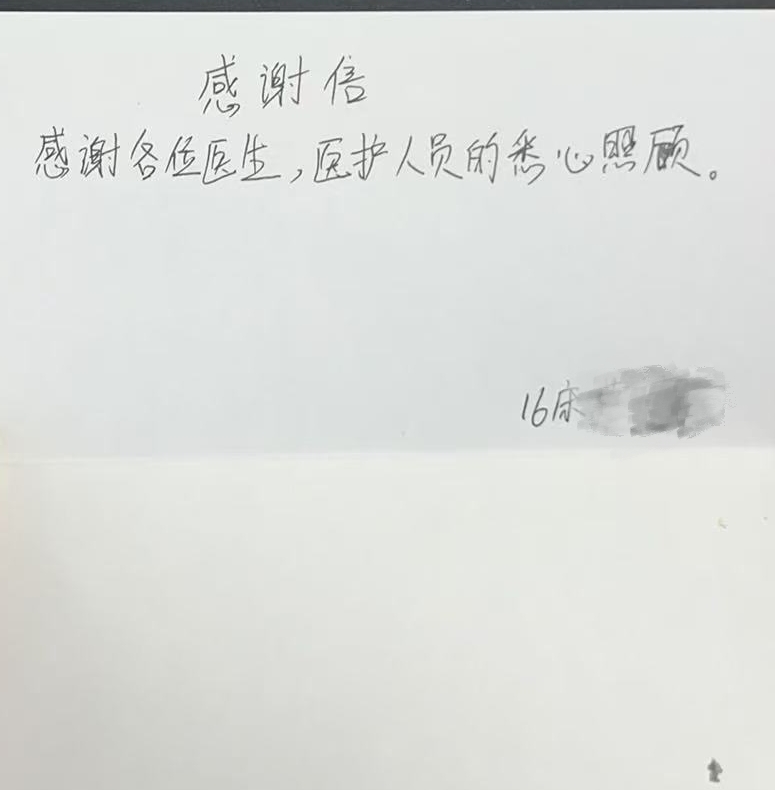 感谢信
感谢各位医生,医护人员的悉心照顾。
16床